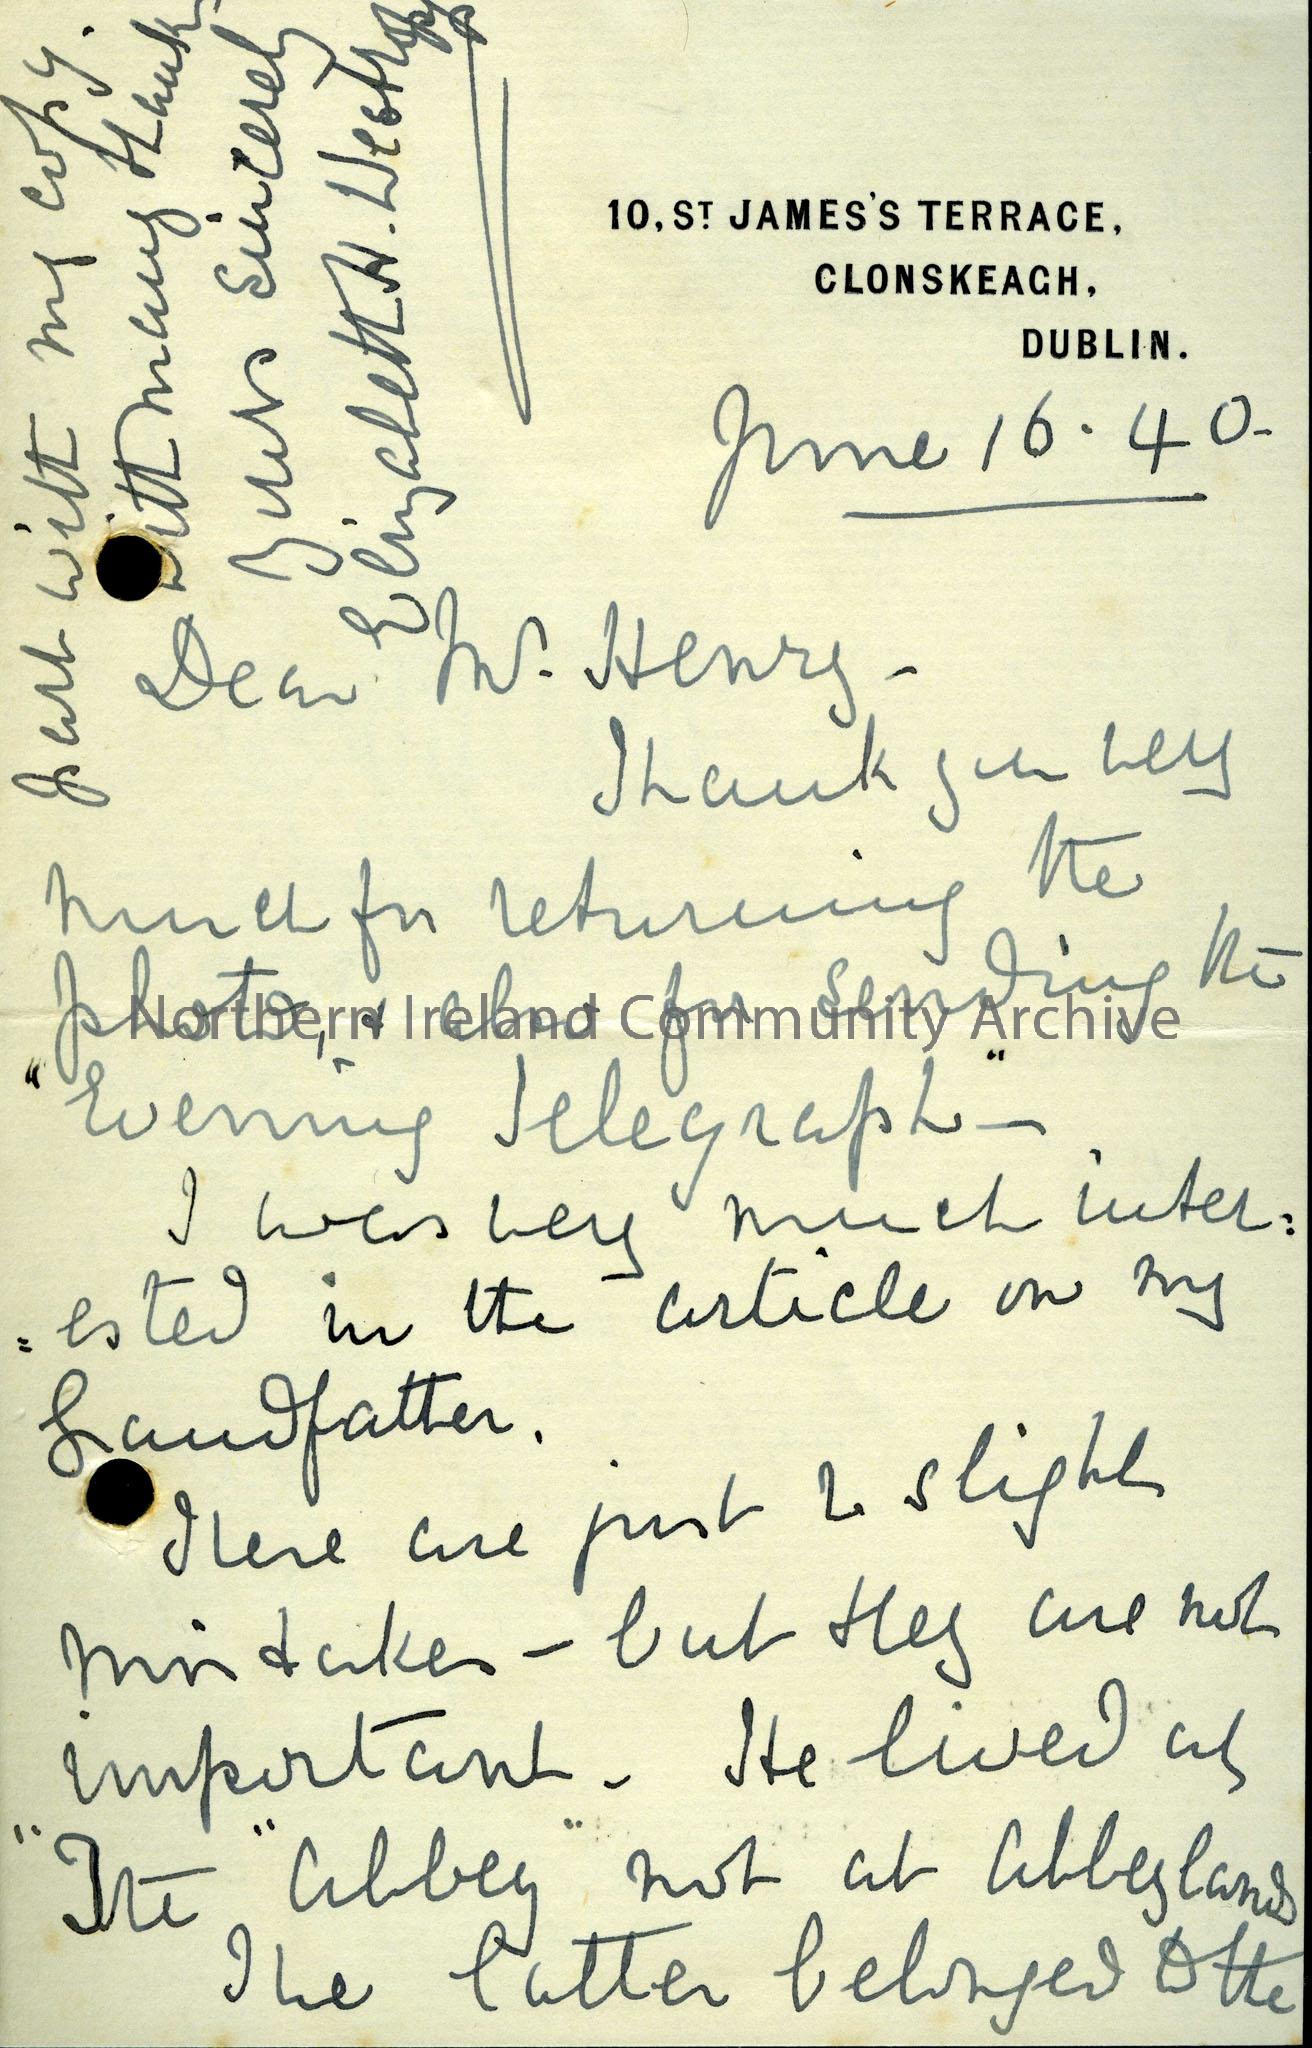 10, ST JAMES'S TERRACE,
CLONSKEAGH,
DUBLIN.
June 16. 40.
Dear Mr. Henry -
Thank you very
much for returning the
photo, & also for sending the
"Evening Telegraph" -
I was very much inter=
=ested in the article on my
Grandfather.
There are just 2 slight
mistakes - but they are not
important. He lived at
"The "Abbey" not at Abbeylands
The latter belonged to the
part with my copy.
With many thanks
Yours sincerely
Elizabeth H. Westropp
Northern Ireland Community Archive